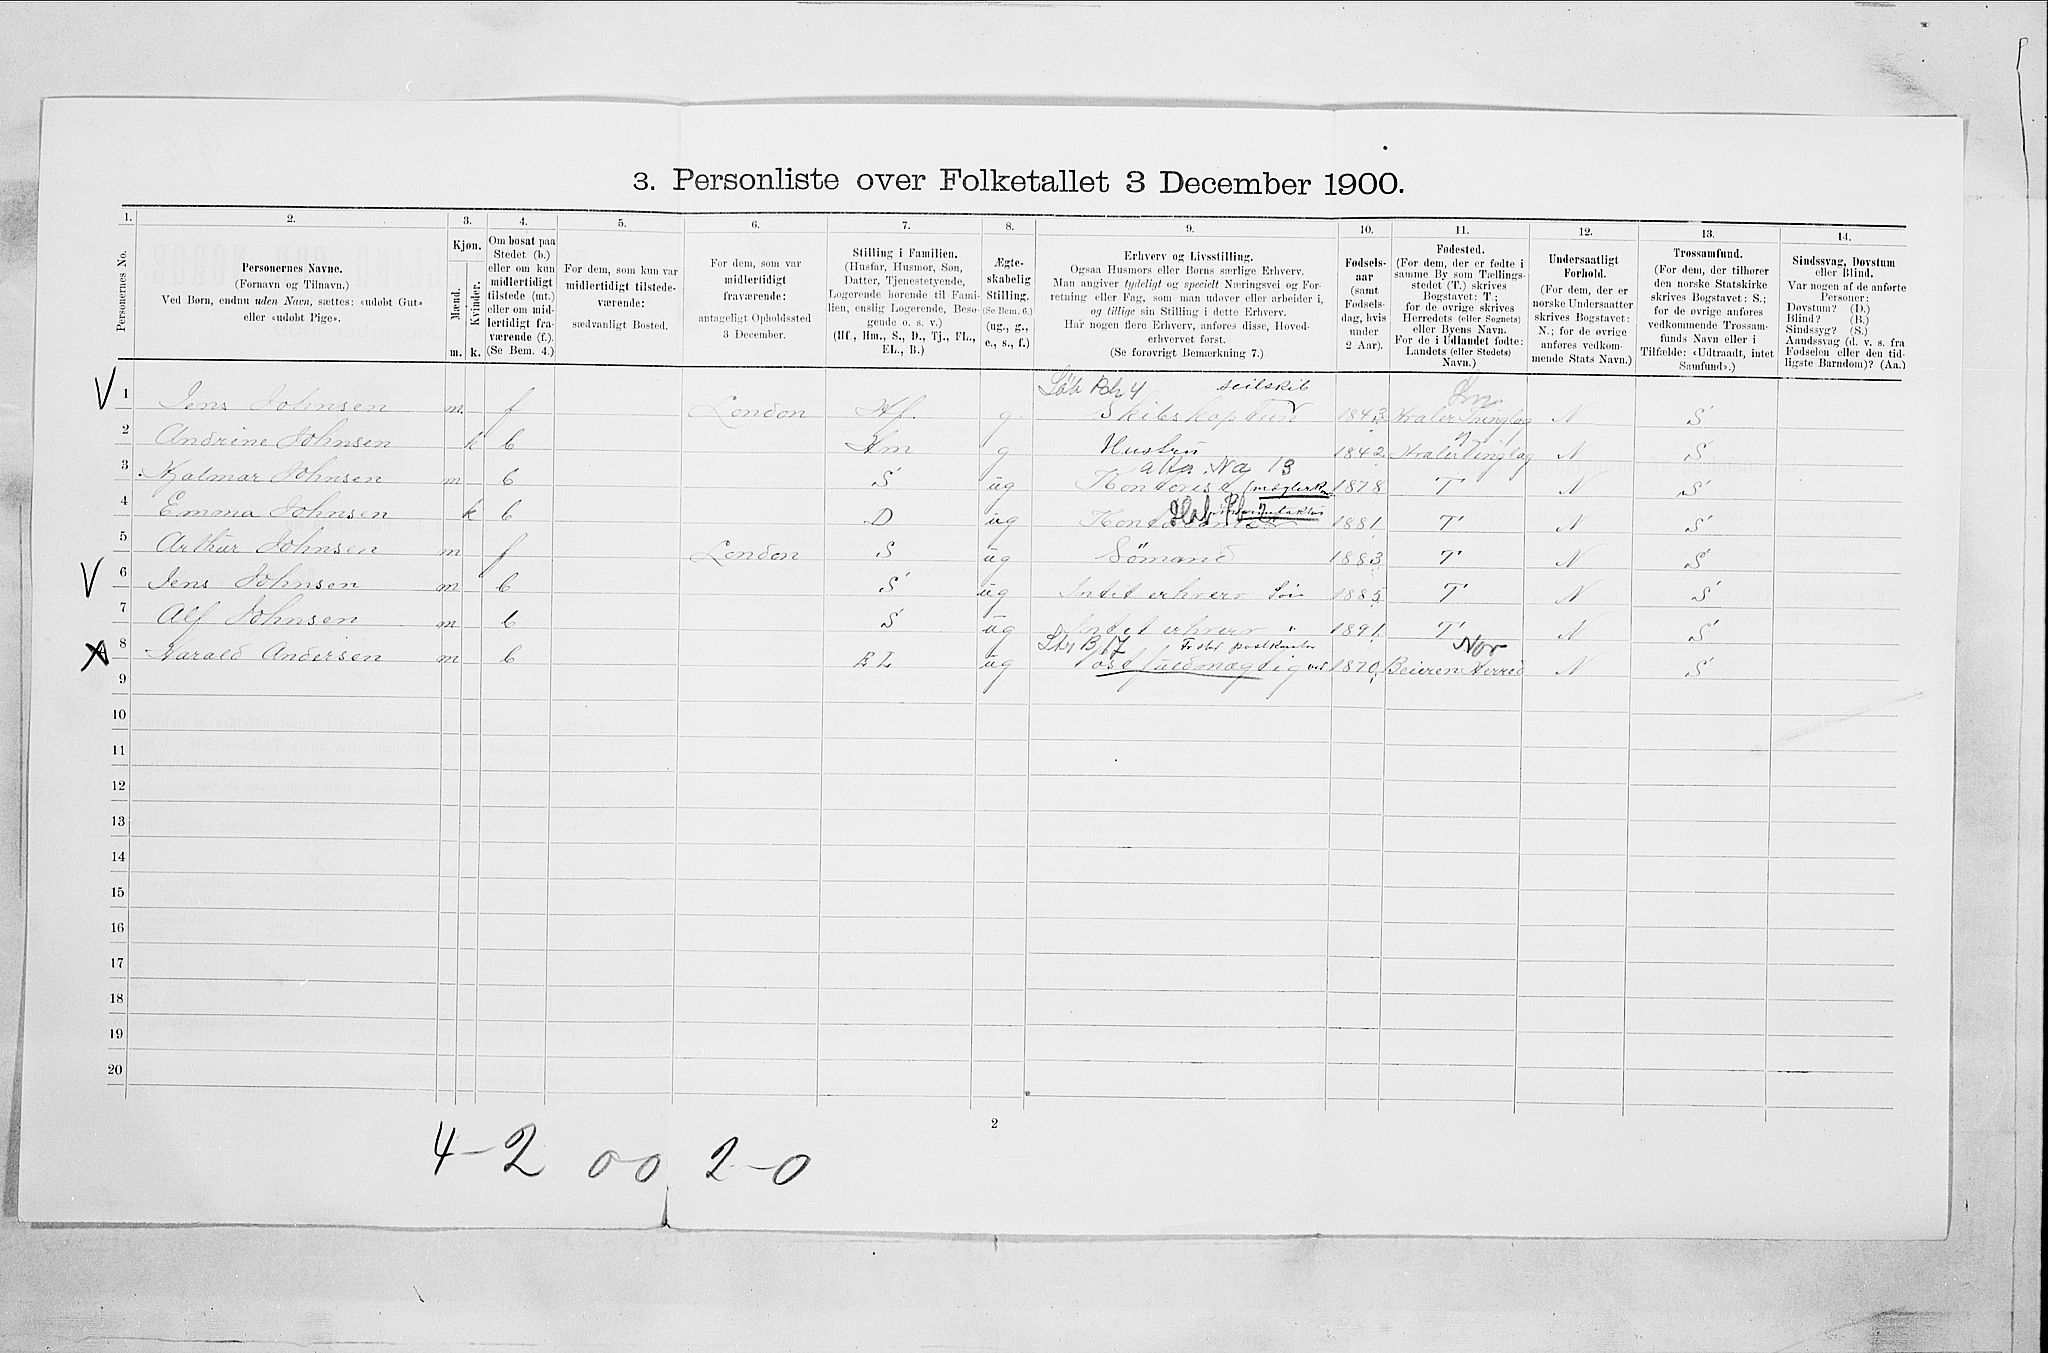 3. Personliste over Folketallet 3 December 1900.
1. 2. 3. 4. 5. 6. 7. 8. 9. 10. 11. 12. 13. 14.
Personernes No.
Personernes Navne.
(Fornavn og Tilnavn.)
Ved Børn, endnu uden Navn, sættes: «udøbt Gut»
eller «udøbt Pige».
Kjøn.
Mænd. Kvinder.
m. k.
Om bosat paa
Stedet (b.)
eller om kun
midlertidigt
tilstede (mt.)
eller om mid-
lertidigt fra-
værende (f.).
(Se Bem. 4.)
For dem, som kun var
midlertidigt tilstede-
værende:
sædvanligt Bosted.
For dem, som var
midlertidigt
fraværende:
antageligt Opholdssted
3 December.
Stilling i Familien.
(Husfar, Husmor, Søn,
Datter, Tjenestetyende,
Logerende hørende til Fami-
lien, enslig Logerende, Besø-
gende o. s. v.)
(Hf., Hm., S., D., Tj., FL.,
EL., B.)
Ægte-
skabelig
Stilling.
(Se Bem. 6.)
(ug., g.,
e., s., f.)
Erhverv og Livsstilling.
Ogsaa Husmors eller Børns særlige Erhverv.
Man angiver tydeligt og specielt Næringsvei og For-
retning eller Fag, som man udøver eller arbeider i,
og tillige sin Stilling i dette Erhverv.
Har nogen flere Erhverv, anføres disse, Hoved-
erhvervet først.
(Se forøvrigt Bemærkning 7.)
Fødsels-
aar
(samt
Fødsels-
dag, hvis
under
2 Aar).
Fødested.
(For dem, der er fødte i
samme By som Tællings-
stedet (T.) skrives
Bogstavet: T.;
for de øvrige skrives
Herredets (eller Sognets)
eller Byens Navn.
For de i Udlandet fødte:
Landets (eller Stedets)
Navn.)
Undersaatligt
Forhold.
(For dem, der er
norske Undersaatter
skrives Bogstavet:
N.; for de øvrige
anføres vedkom-
mende Stats Navn.)
Trossamfund.
(For dem, der tilhører
den norske Statskirke
skrives Bogstavet: S.;
for de øvrige anføres
vedkommende Trossam-
funds Navn eller i
Tilfælde: «Udtraadt, intet
Samfund».)
Sindssvag, Døvstum
eller Blind.
Var nogen af de anførte
Personer:
Døvstum? (D.)
Blind? (B.)
Sindssyg? (S.)
Aandssvag (d. v. s. fra
Fødselen eller den tid-
ligste Barndom)? (Aa.)
seilskib
1 Jens Johnsen m f London Hf. g. Skibskaptein 1843 N S
2 Andrine Johnsen k b Hm g Hustru 1842 N S
3 Hjalmar Johnsen m b S ug Kontorist 1878 T N S
4 Emma Johnsen k b D ug 1881 T N S
5 Arthur Johnsen m f London S ug Sömand 1883 T N S
6 Jens Johnsen m b S ug Intet erhverv 1885 T N S
7 Alf Johnsen m b S ug Intet erhverv " 1891 T N S
Nor
8 Harald Andersen m b EL ug Postfuldmægtig 1870 Beieren Herred N S
9
10
11
12
13
14
15
16
17
18
19
20
2
4-2 00 2-0